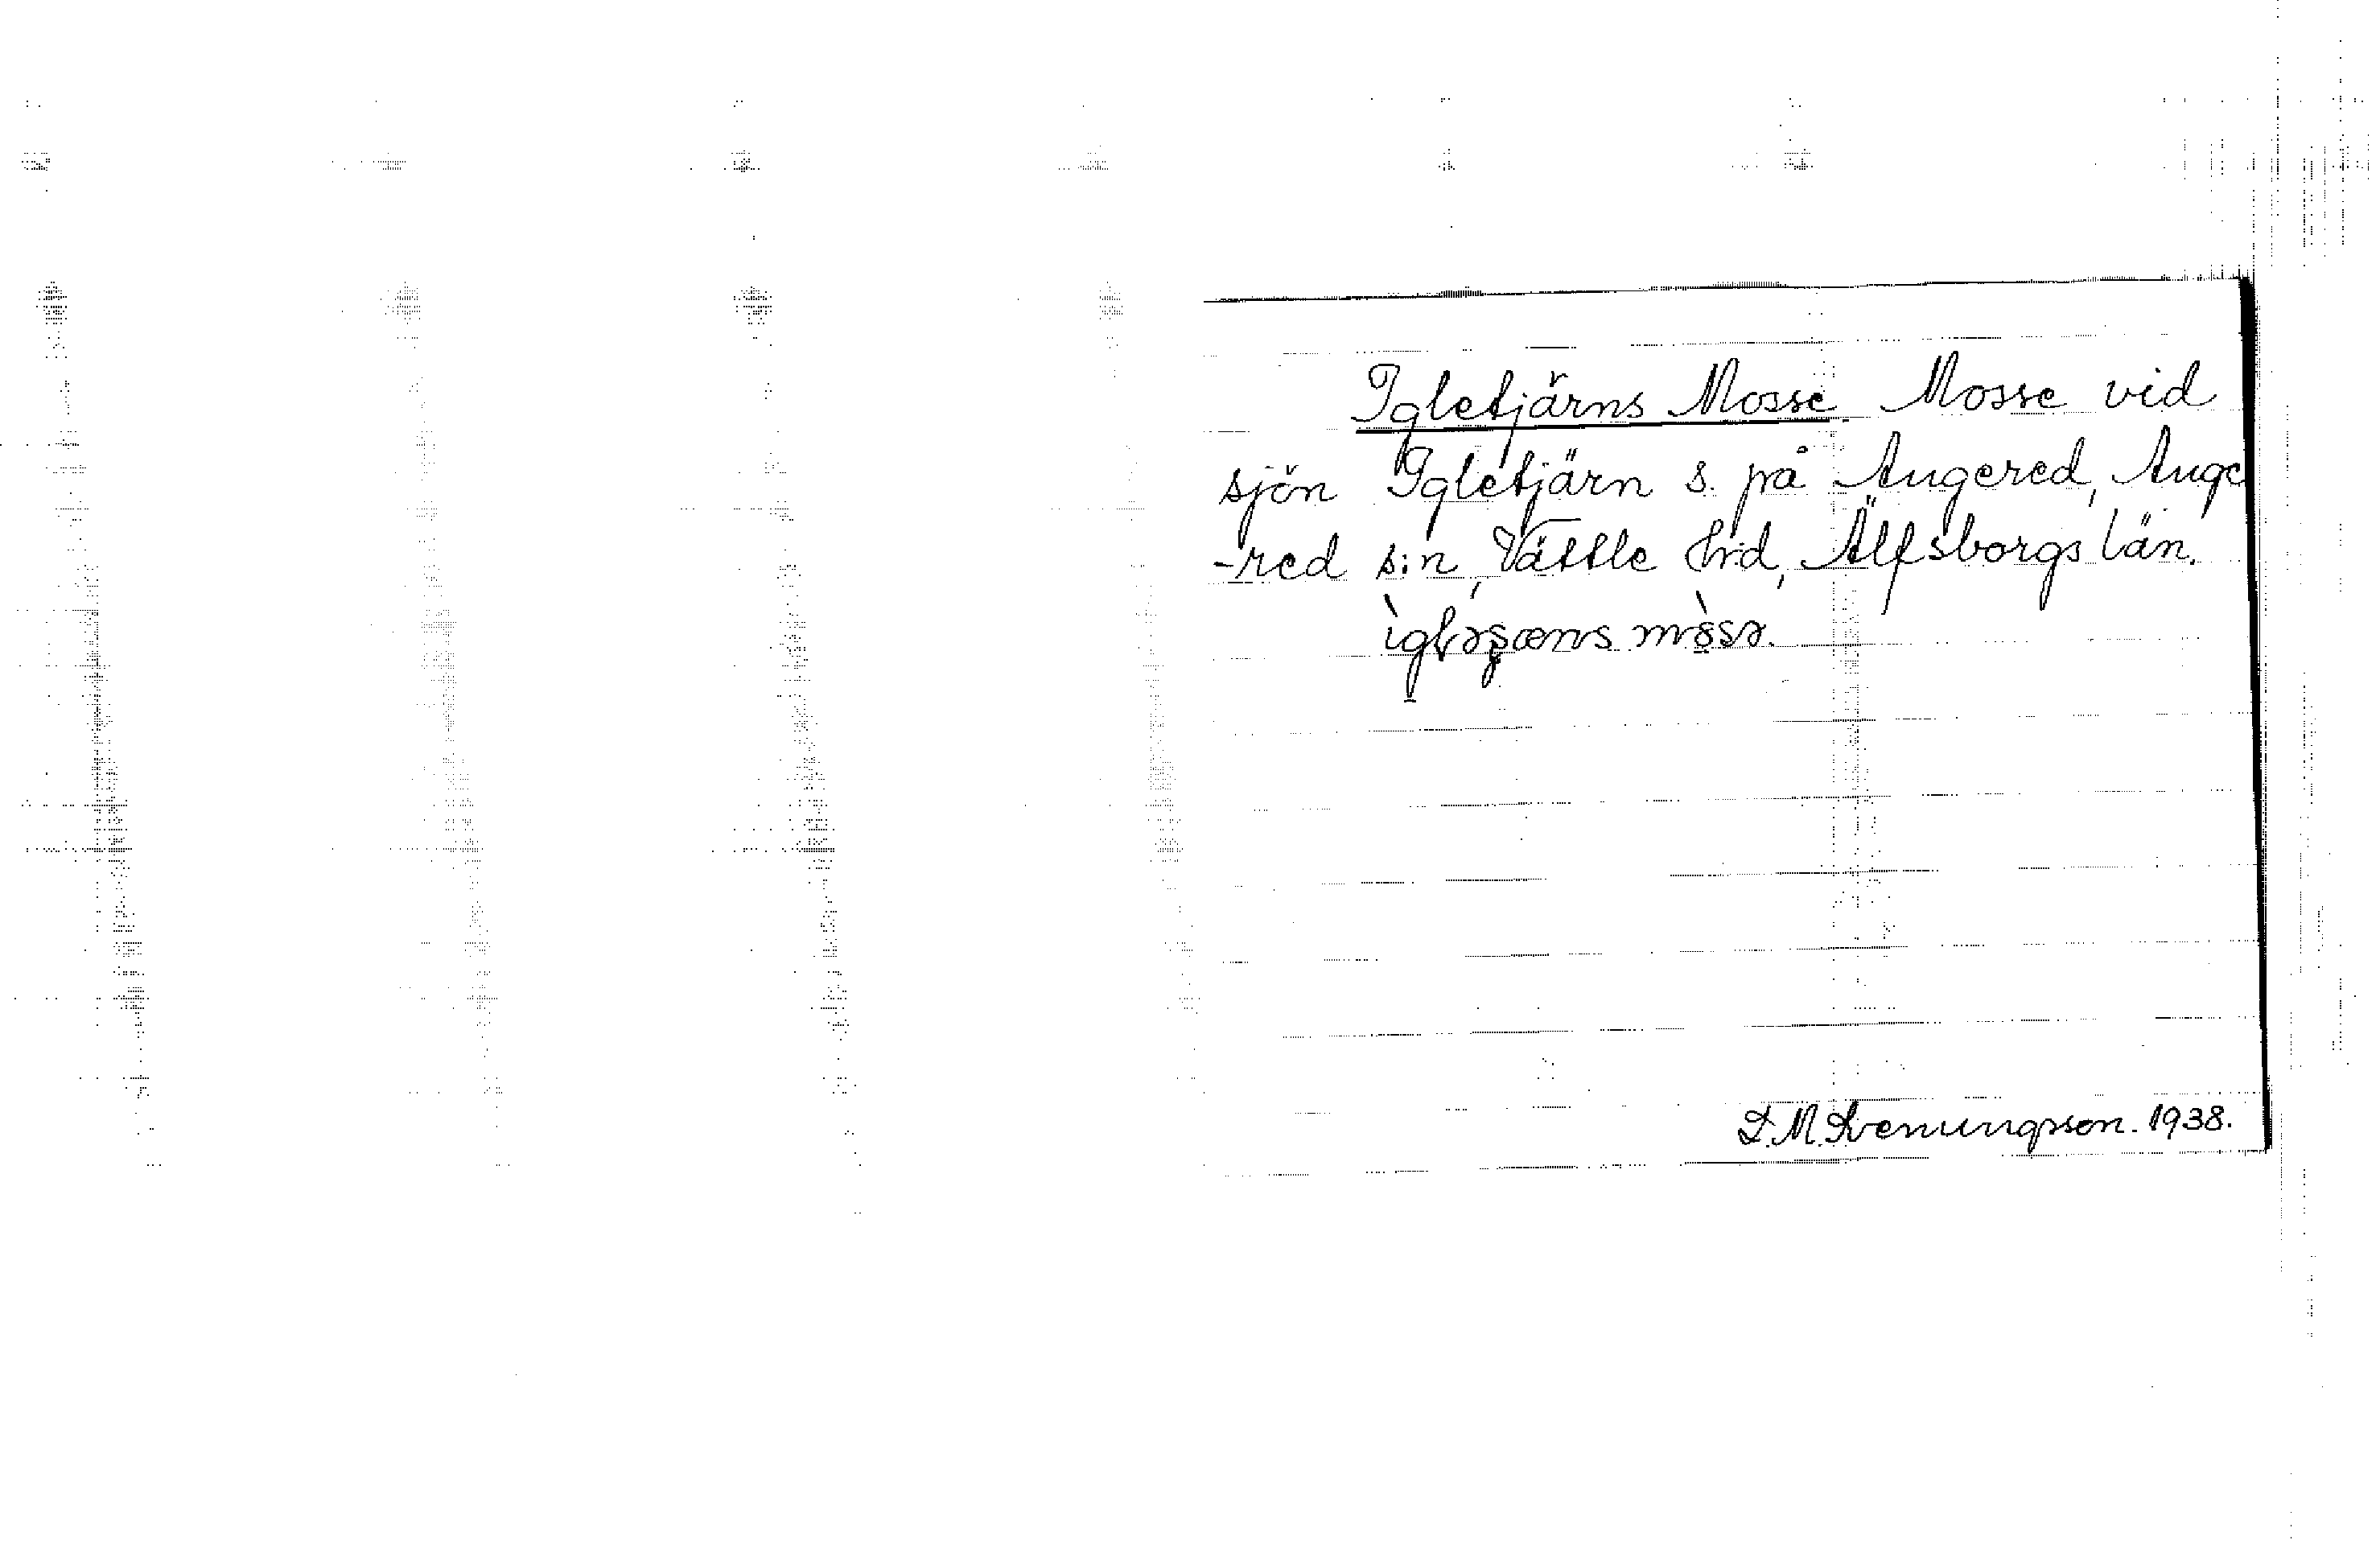 Igletjärns Mosse. Mosse vid
sjön Igletjärn s. på Angered, Ange
-red s:n, Vättle hrd, Älfsborgs län.
D.M. Svenungsson. 1938.